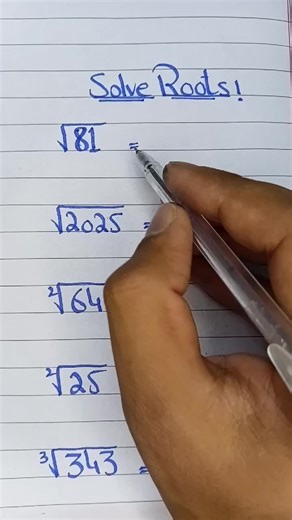 Solve Roots!
√81 =
√2025 =
²√64
²√25
³√343 =